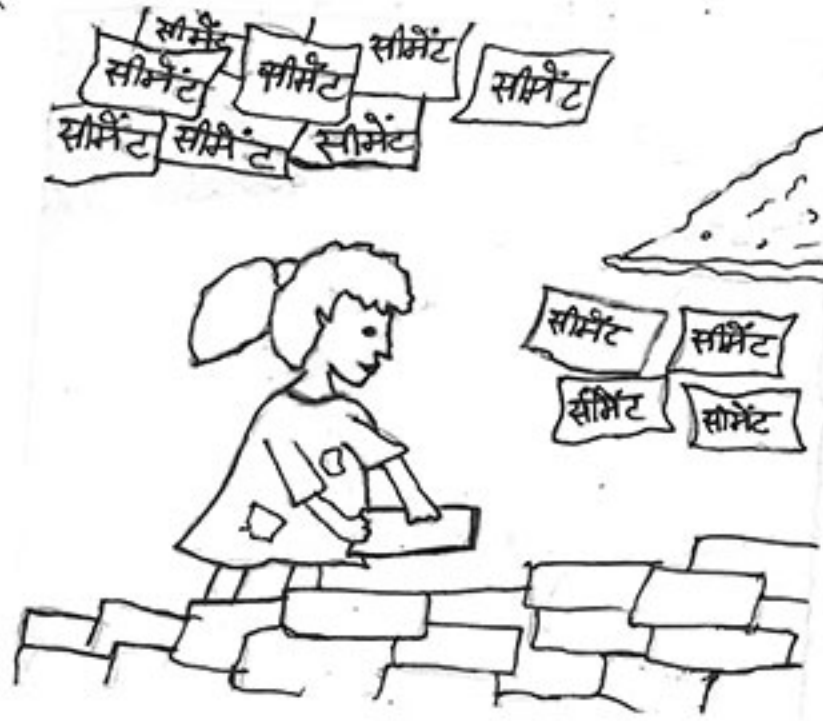 सीमेंट
सीमेंट सीमेंट सीमेंट सीमेंट
सीमेंट सीमेंट सीमेंट
सीमेंट सीमेंट
सीमेंट सीमेंट